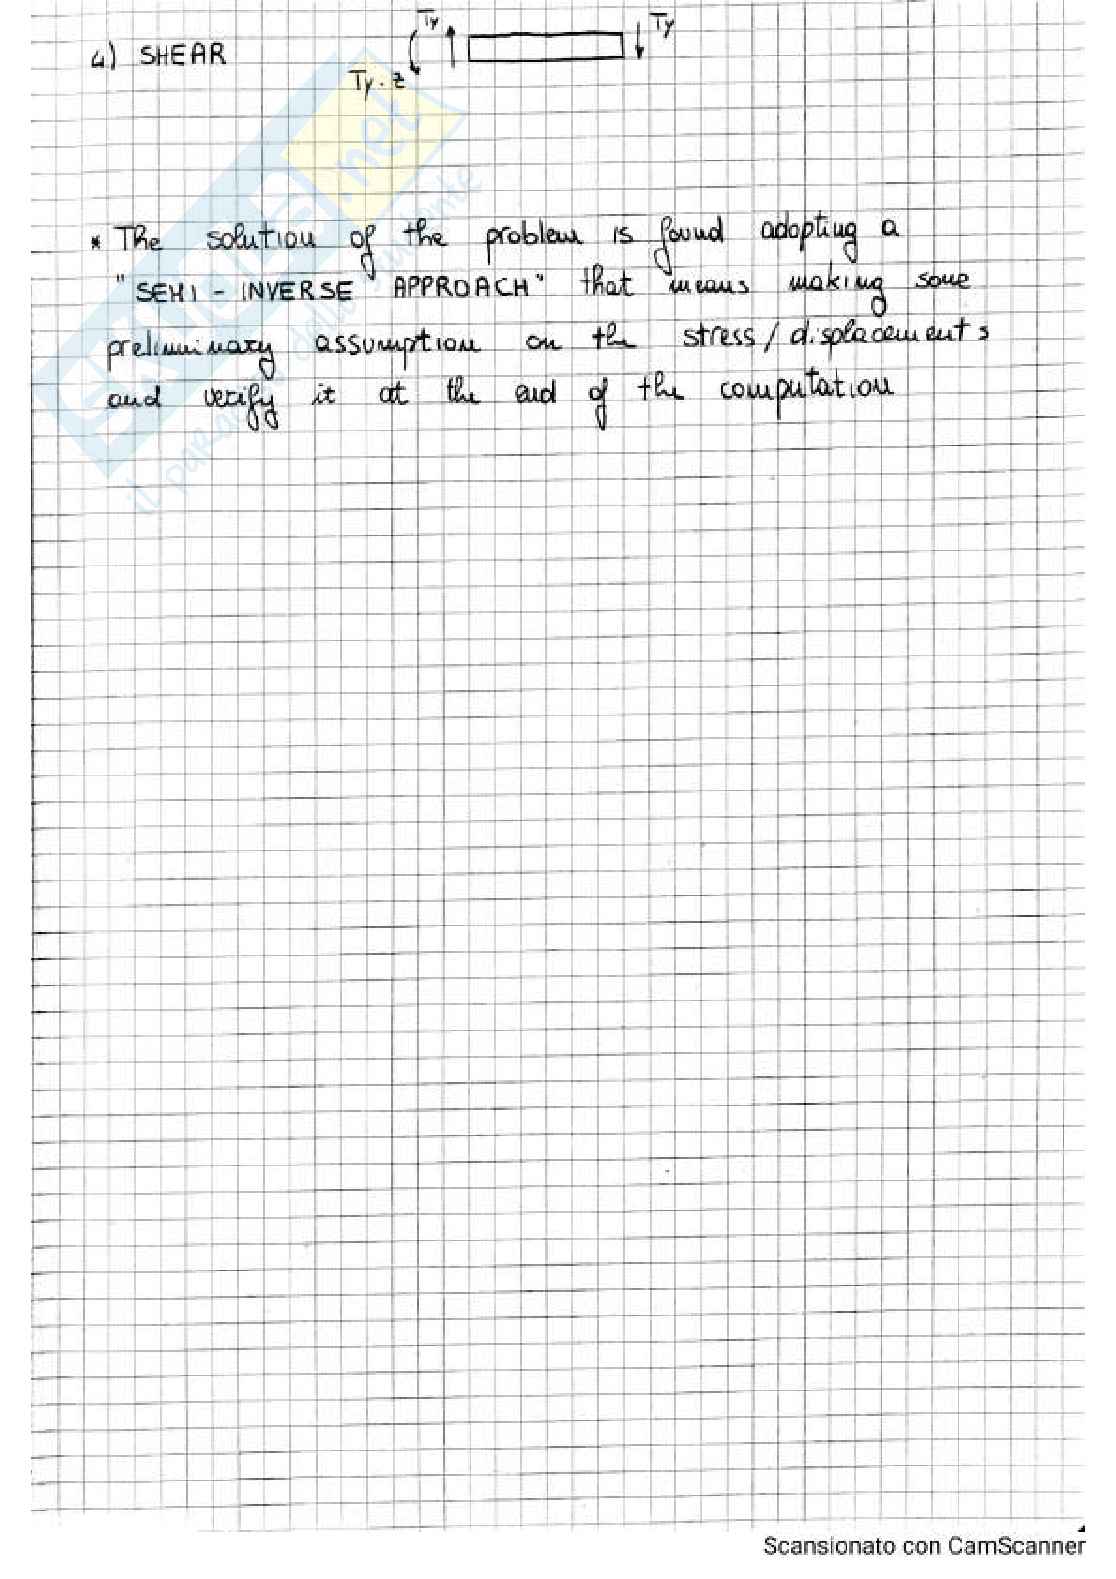 4.) SHEAR
Ty
Ty
Ty . z
* The solution of the problem is found adopting a
"SEMI - INVERSE APPROACH" that means making some
preliminary assumption on the stress / displacements
and verify it at the end of the computation
Skuola.net
Scansionato con CamScanner